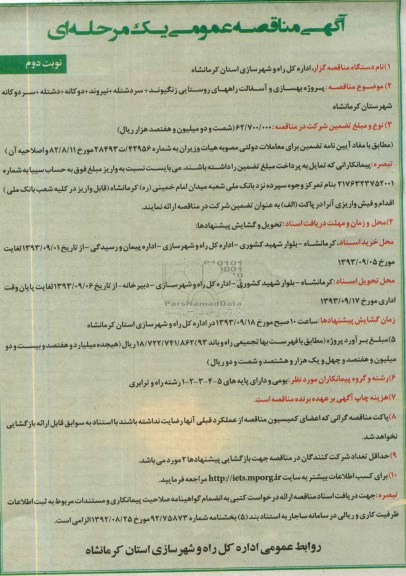 آگهی مناقصه عمومی یک مرحله‌ای
نوبت دوم
۱)نام دستگاه مناقصه گزار: اداره کل راه و شهرسازی استان کرمانشاه
۲) موضوع مناقصه: پروژه بهسازی و آسفالت راههای روستایی زنگیوند + سردشتله +نیروند +دوکانه +دشتله +سردوکانه
شهرستان کرمانشاه
۳)نوع و مبلغ تضمین شرکت در مناقصه: ۶۲/۷۰۰/۰۰۰(شصت و دو میلیون و هفتصد هزار ریال)
(مطابق با مفاد آیین نامه تضمین برای معاملات دولتی مصوبه هیات وزیران به شماره ۴۲۹۵۶/ت۲۸۴۹۳ مورخ ۸۲/۸/۱۱ و اصلاحیه آن)
تبصره: پیمانکارانی که تمایل به پرداخت مبلغ تضمین را داشته باشند. می بایست نسبت به واریز مبلغ فوق به حساب سیبا به شماره
۲۱۷۶۴۳۳۷۵۲۰۰۱ بنام تمرکز وجوه سپرده نزد بانک ملی شعبه میدان امام خمینی (ره) کرمانشاه (قابل واریز در کلیه شعب بانک ملی)
اقدام و فیش واریزی آنرا در پاکت (الف) به عنوان تضمین شرکت در مناقصه ارائه نمایند.
۴)محل و زمان و مهلت دریافت اسناد: تحویل و گشایش پیشنهادها:
محل خرید اسناد: کرمانشاه - بلوار شهید کشوری -اداره کل راه و شهرسازی -اداره پیمان و رسیدگی -از تاریخ ۱۳۹۳/۰۹/۰۱لغایت
مورخ ۱۳۹۳/۰۹/۰۵
محل تحویل اسناد: کرمانشاه - بلوار شهید کشوری -اداره کل راه و شهرسازی -دبیرخانه - از تاریخ ۱۳۹۳/۰۹/۰۶لغایت پایان وقت
اداری مورخ ۱۳۹۳/۰۹/۱۷
ParsNamadData
زمان گشایش پیشنهادها: ساعت ۱۰ صبح مورخ ۱۳۹۳/۰۹/۱۸ در اداره کل راه و شهرسازی استان کرمانشاه
۵)مبلغ برآورد پروژه (مطابق با فهرست بها تجمیعی راه و باند ۹۳)۱۸/۷۲۲/۷۴۱/۸۶۲ریال (هیجده میلیارد و هفتصد و بیست و دو
میلیون و هفتصد و چهل و یک هزار و هشتصد و شصت و دو ریال)
۶)رشته و گروه پیمانکاران مورد نظر: بومی و دارای پایه های ۵-۴-۳-۲-۱ رشته راه و ترابری
۷)هزینه چاپ آگهی بر عهده برنده مناقصه است.
۸)پاکت مناقصه گرانی که اعضای کمیسیون مناقصه از عملکرد قبلی آنها رضایت نداشته باشند با استناد به سوابق قابل ارائه بازگشایی
نخواهد شد.
۹)حداقل تعداد شرکت کنندگان در مناقصه جهت بازگشایی پیشنهادها ۲ مورد می باشد.
۱۰)برای کسب اطلاعات بیشتر به سایت http://iets.mporg.ir مراجعه فرمایید.
تبصره: جهت دریافت اسناد مناقصه ارائه درخواست کتبی به انضمام گواهینامه صلاحیت پیمانکاری و مستندات مربوط به ثبت اطلاعات
ظرفیت کاری و ریالی در سامانه ساجار به استناد بند (۵) بخشنامه شماره ۹۲/۷۵۸۷۳ مورخ ۱۳۹۲/۰۸/۲۵ الزامی است.
روابط عمومی اداره کل راه و شهرسازی استان کرمانشاه